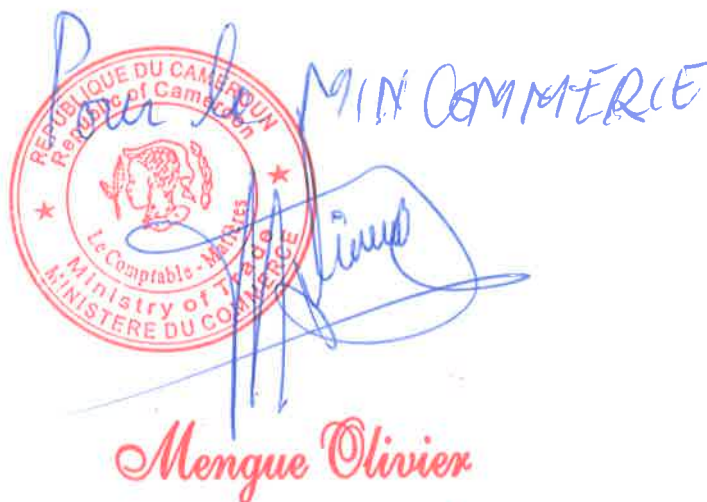 Pour le MINCOMMERCE
REPUBLIQUE DU CAMEROUN
Republic of Cameroon
Le Comptable - Matières
Ministry of Trade
MINISTERE DU COMMERCE
Mengue Olivier